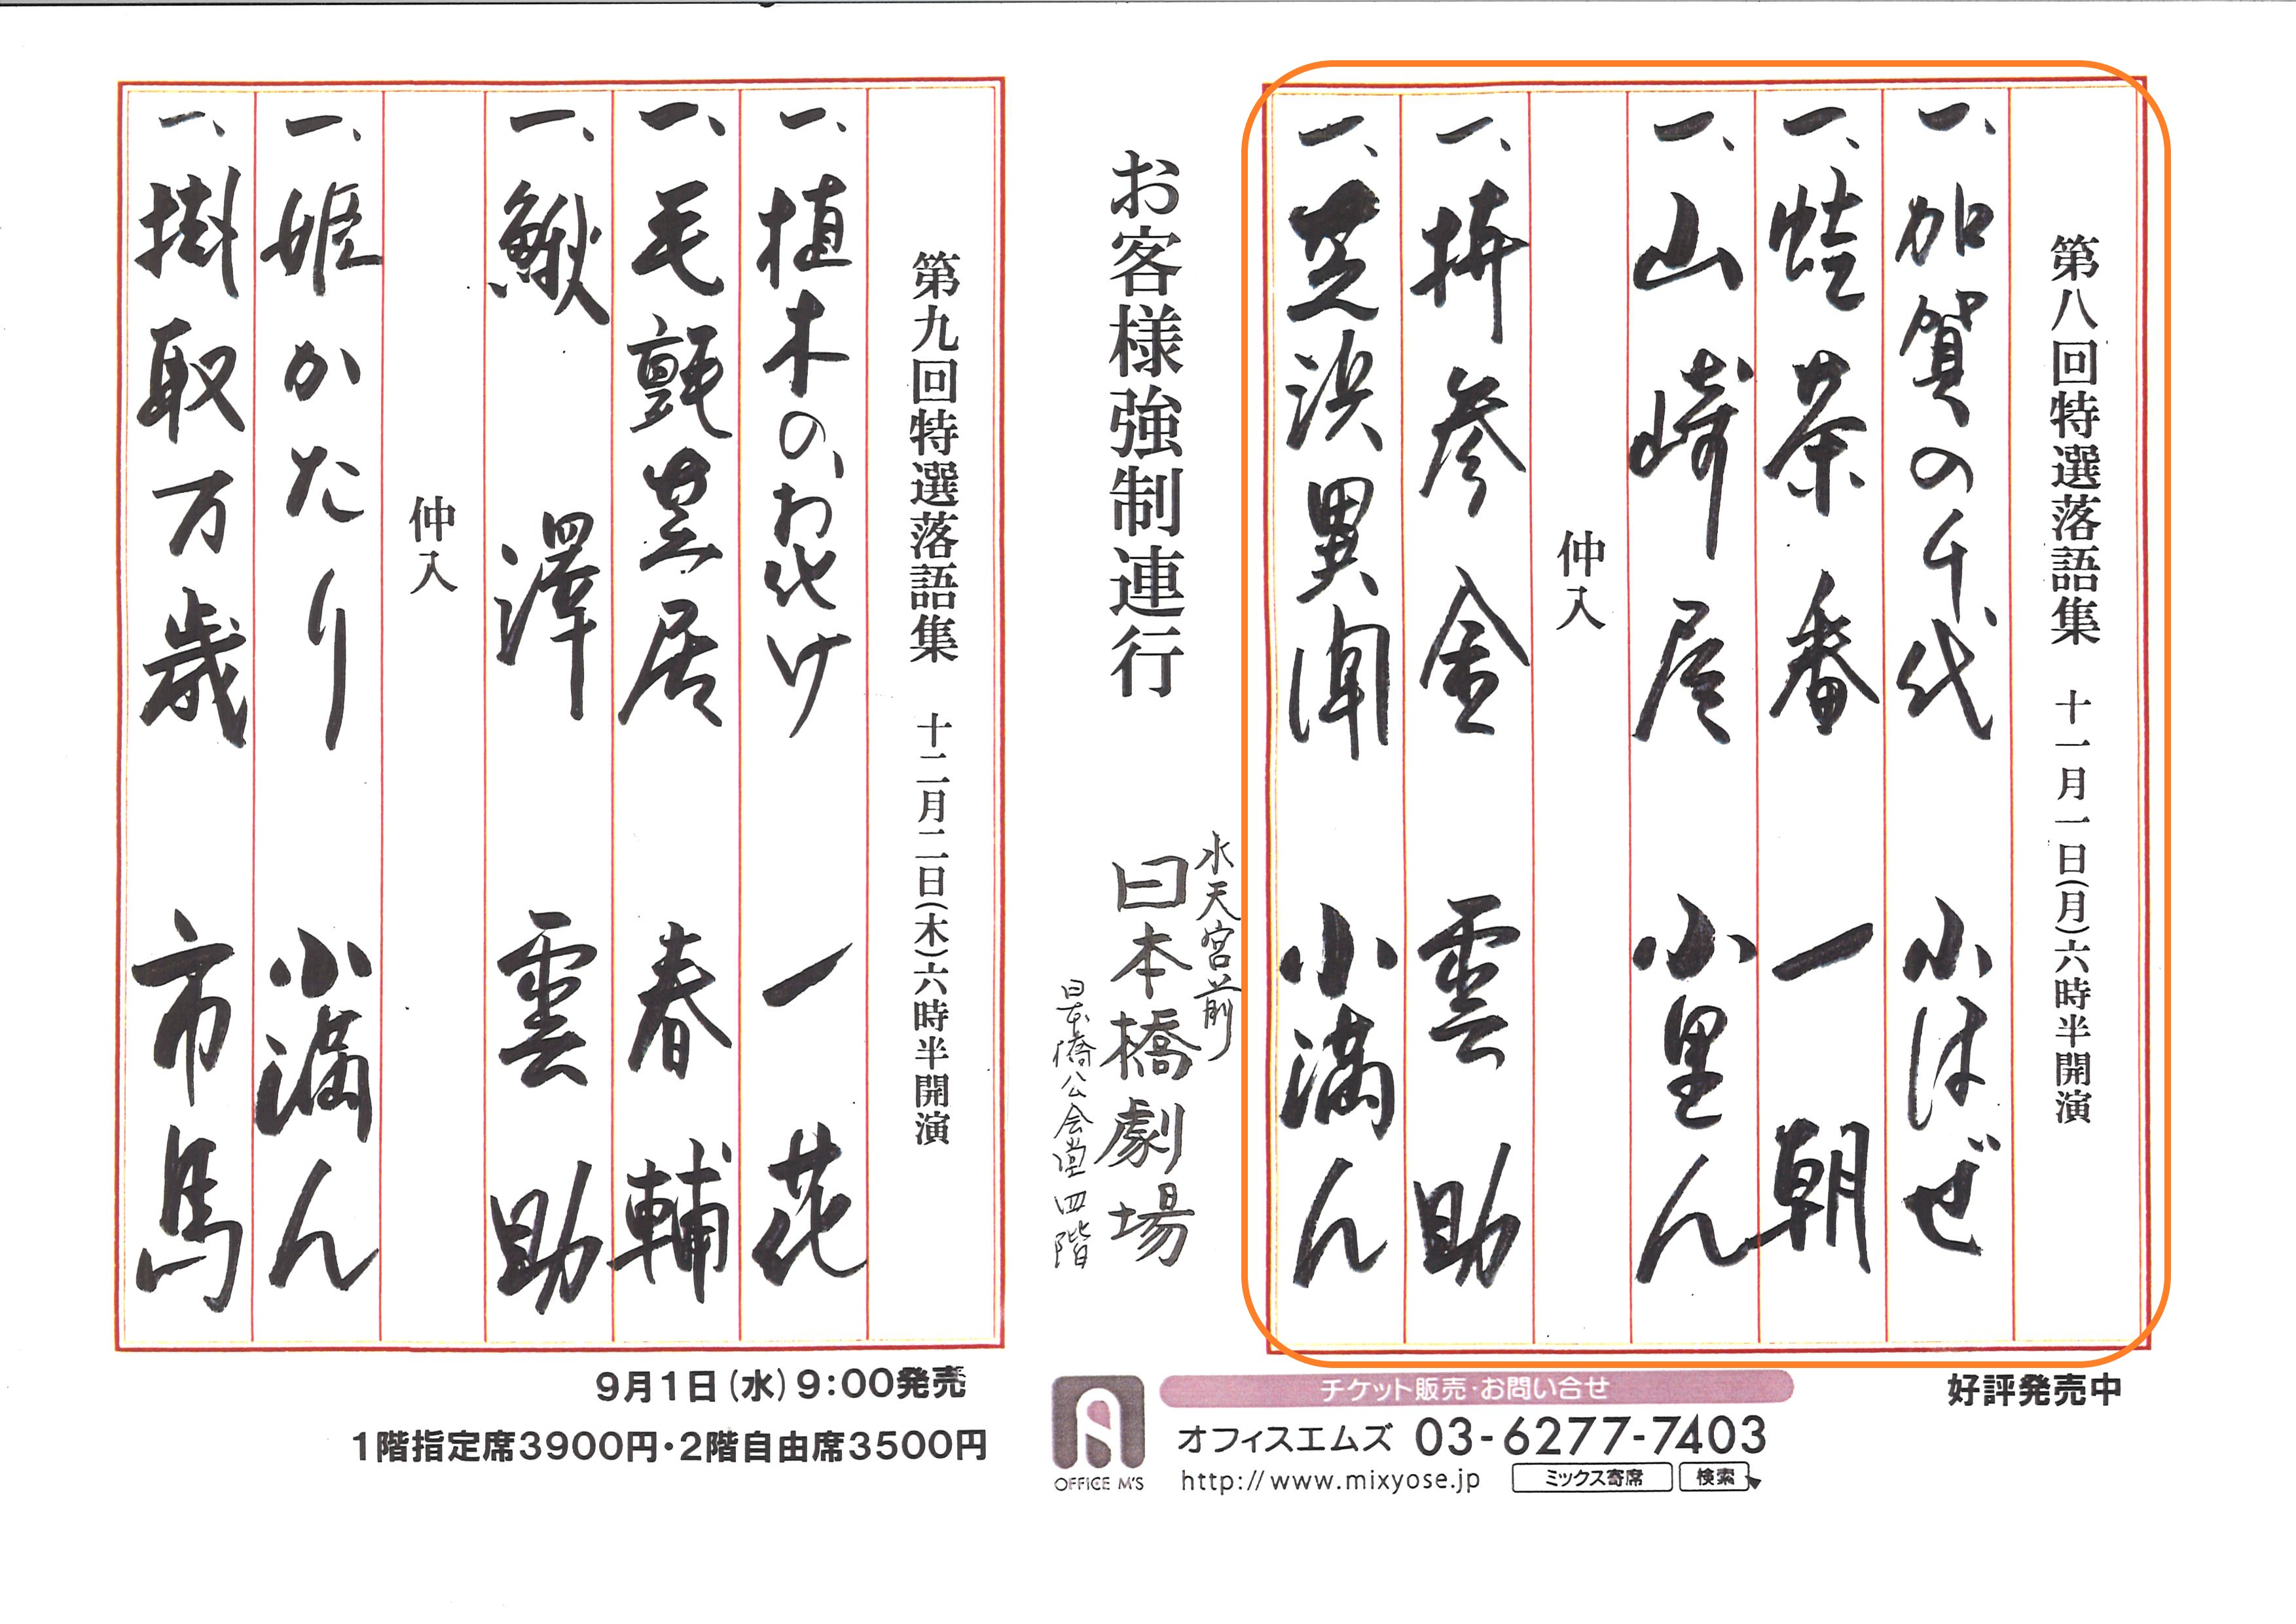 第八回特選落語集 十一月一日(月)六時半開演
一、加賀の千代 小はぜ
一、蛙茶番 一朝
一、山崎屋 小里ん
仲入
一、拼参金 雲助
一、芝浜異聞 小満ん
好評発売中
お客様強制連行
水天宮前
日本橋劇場
日本橋公会堂四階
チケット販売・お問い合せ
オフィスエムズ 03-6277-7403
http://www.mixyose.jp ミックス寄席 検索
OFFICE M'S
第九回特選落語集 十二月二日(木)六時半開演
一、植木のお化け 一花
一、毛氈芝居 春輔
一、鰍澤 雲助
仲入
一、姫かたり 小満ん
一、掛取万歳 市馬
9月1日(水)9:00発売
1階指定席3900円・2階自由席3500円